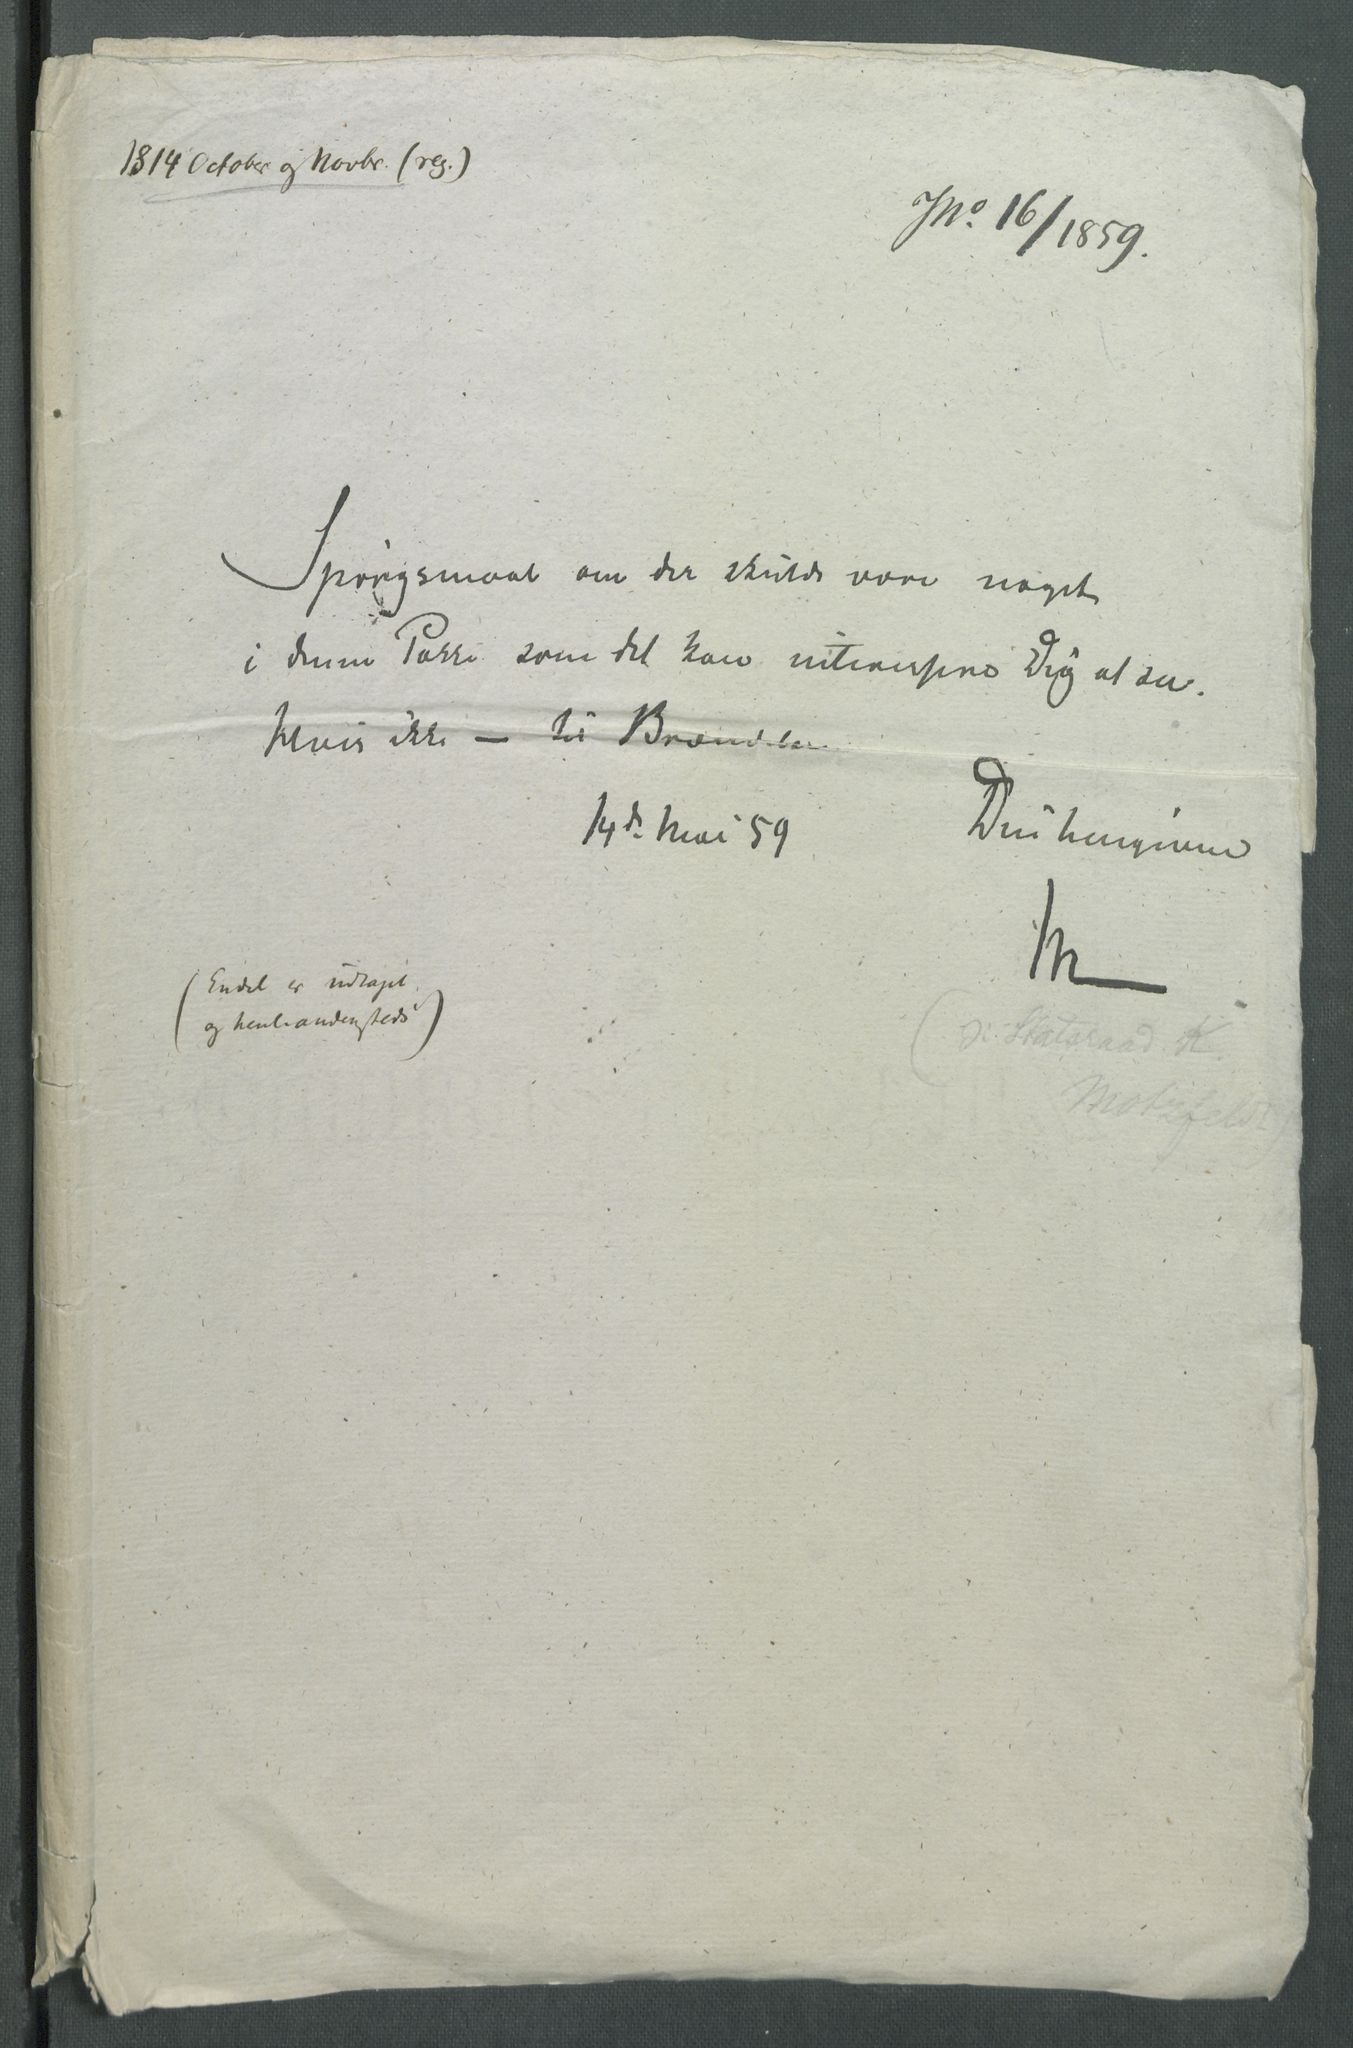 1814 October og Novbr. (reg.)
JNo. 16/1859.
Spörgsmaal om der skulde være noget
i denne Pakke som det kan interessere Dig at see.
Hvis ikke — til Brændelse
14de Mai 59
Din hengivne
M
(Endel er udtaget
og henl. andensteds)
(ɔ: Statsraad K.
Motzfeldt)